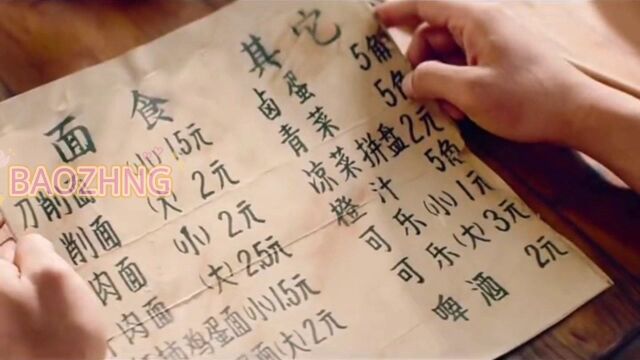 面食
刀削面 (小) 1.5元
削面 (大) 2元
肉面 (小) 2元
肉面 (大) 2.5元
柿鸡蛋面(小)1.5元
蛋面(大)2元
其它
卤蛋 5角
青菜 5角
凉菜拼盘 2元
橙汁 5角
可乐(小)1元
可乐(大)3元
啤酒 2元
BAOZHNG